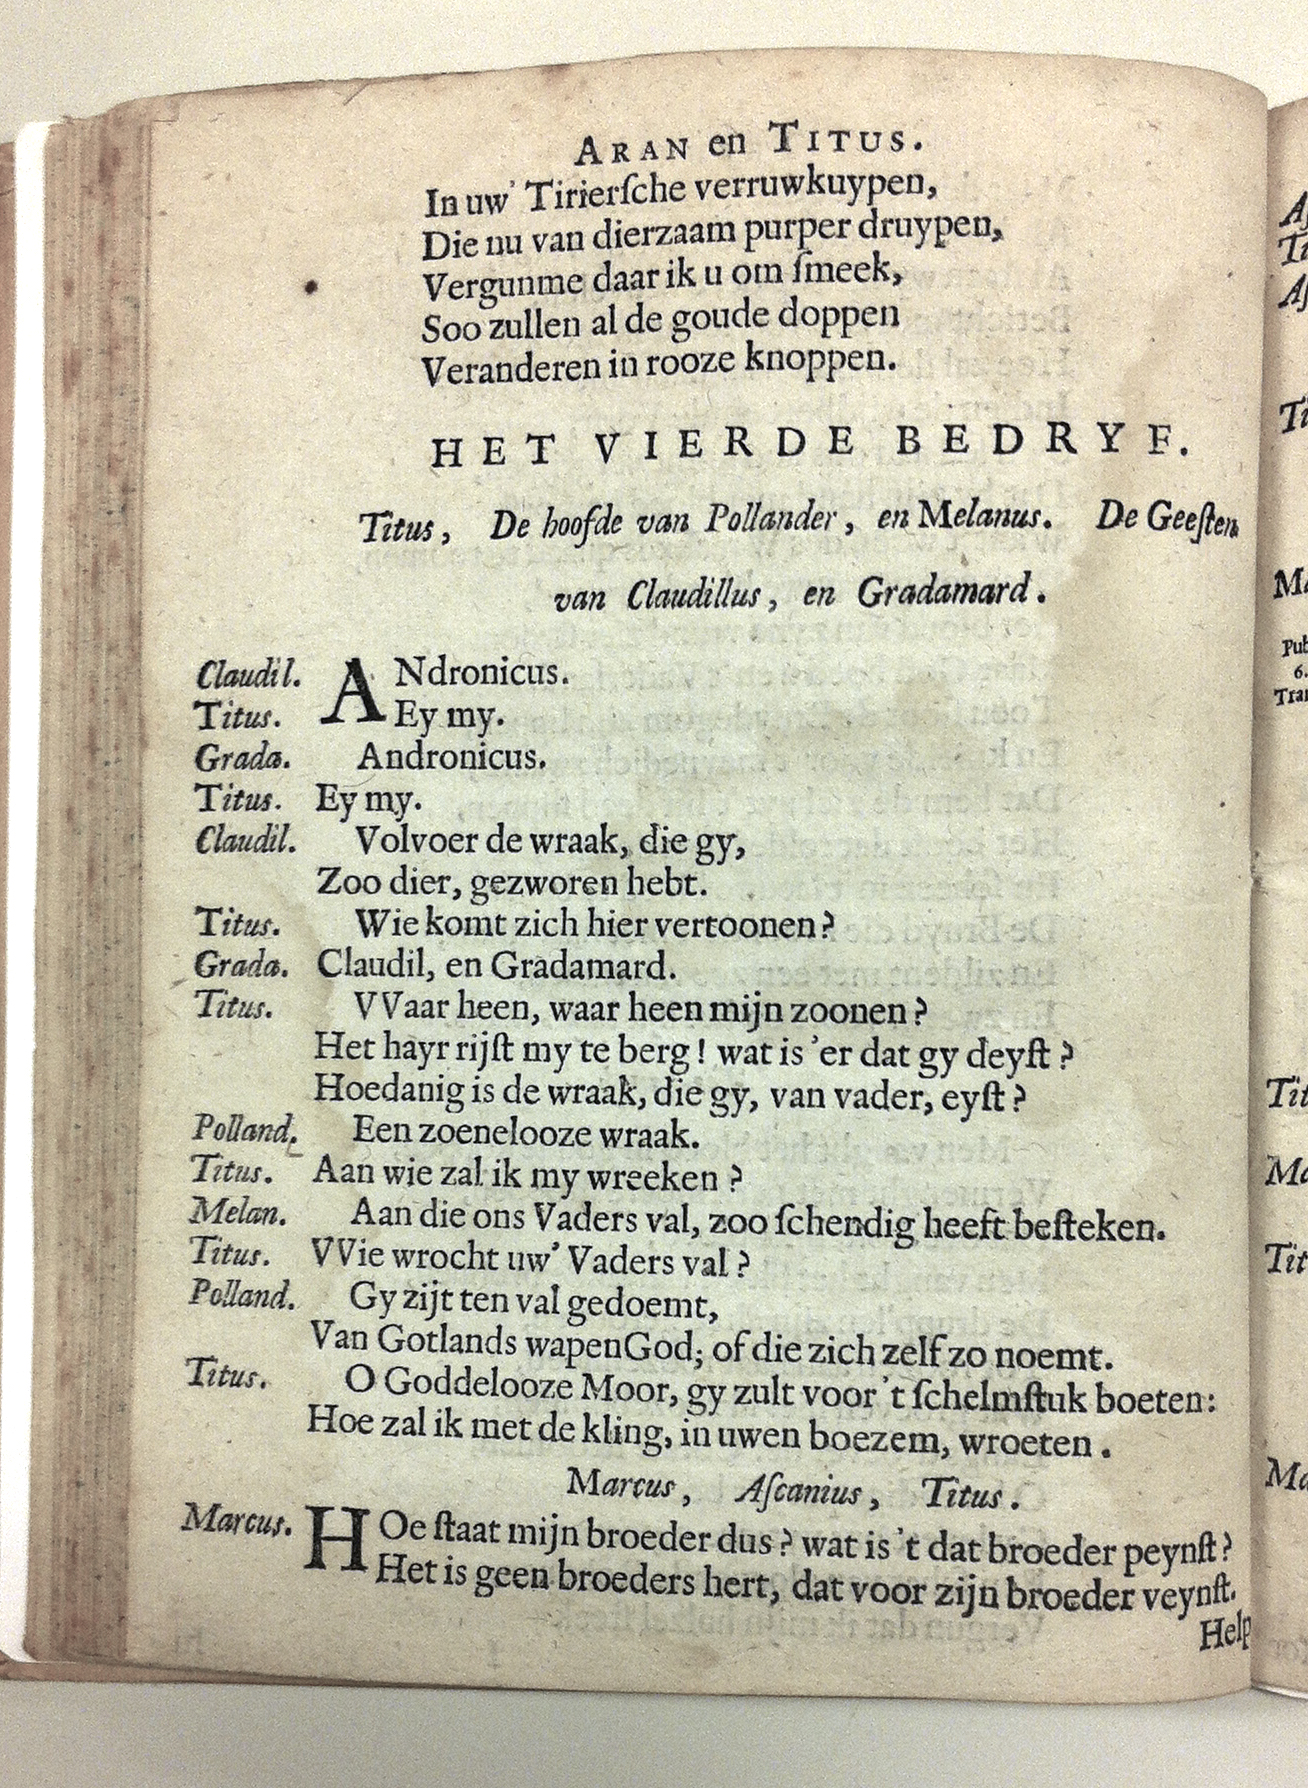 ARAN en TITUS.
In uw' Tirierſche verruwkuypen,
Die nu van dierzaam purper druypen,
Vergunme daar ik u om ſmeek,
Soo zullen al de goude doppen
Veranderen in rooze knoppen.
HET VIERDE BEDRYF.
Titus, De hoofde van Pollander, en Melanus. De Geeſten
van Claudillus, en Gradamard.
Claudil. ANdronicus.
Titus. Ey my.
Grada. Andronicus.
Titus. Ey my.
Claudil. Volvoer de wraak, die gy,
Zoo dier, gezworen hebt.
Titus. Wie komt zich hier vertoonen?
Grada. Claudil, en Gradamard.
Titus. VVaar heen, waar heen mijn zoonen?
Het hayr rijſt my te berg! wat is 'er dat gy deyſt?
Hoedanig is de wraak, die gy, van vader, eyſt?
Polland. Een zoenelooze wraak.
Titus. Aan wie zal ik my wreeken?
Melan. Aan die ons Vaders val, zoo ſchendig heeft beſteken.
Titus. VVie wrocht uw' Vaders val?
Polland. Gy zijt ten val gedoemt,
Van Gotlands wapenGod; of die zich zelf zo noemt.
Titus. O Goddelooze Moor, gy zult voor 't ſchelmſtuk boeten:
Hoe zal ik met de kling, in uwen boezem, wroeten.
Marcus, Aſcanius, Titus.
Marcus. HOe ſtaat mijn broeder dus? wat is 't dat broeder peynſt?
Het is geen broeders hert, dat voor zijn broeder veynſt.
Help